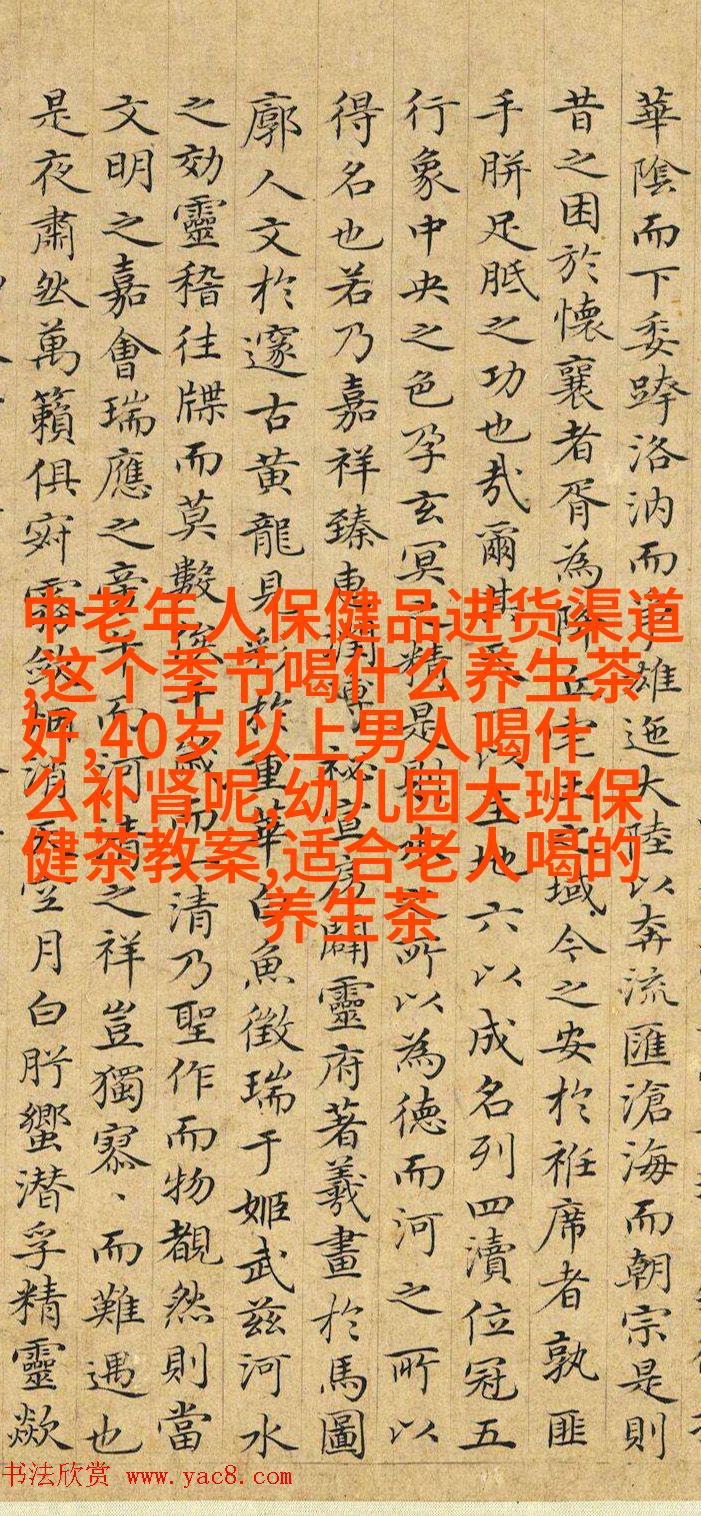 華陰而下委跨洛汭而雄迤大陸以奔流匯滄海而朝宗是則
昔之困於懷襄者胥為降丘宅土之域今之安於袵席者孰匪
手胼足胝之功也哉爾其地六以成名列四瀆位冠五
行象中央之色孕玄冥之精是則水之所以為德而河之所以
得名也若乃嘉祥臻祕宣房闢靈府著羲畫於馬圖
廓人文於邃古黄龍見彩於重華白魚徵瑞于姬武兹河水
之効靈稽往牒而莫數俟千歲而一清乃聖作而物覩然則當
文明之嘉會瑞應之而河清之祥豈獨寡、而難遇也
是夜肅然萬籟俱寂霧斂烟消天空月白肸蠁潛孚精靈歘
中老年人保健品进货渠道
,这个季节喝什么养生茶
好,40岁以上男人喝什
么补肾呢,幼儿园大班保
健茶教案,适合老人喝的
养生茶
书法欣赏 www.yac8.com